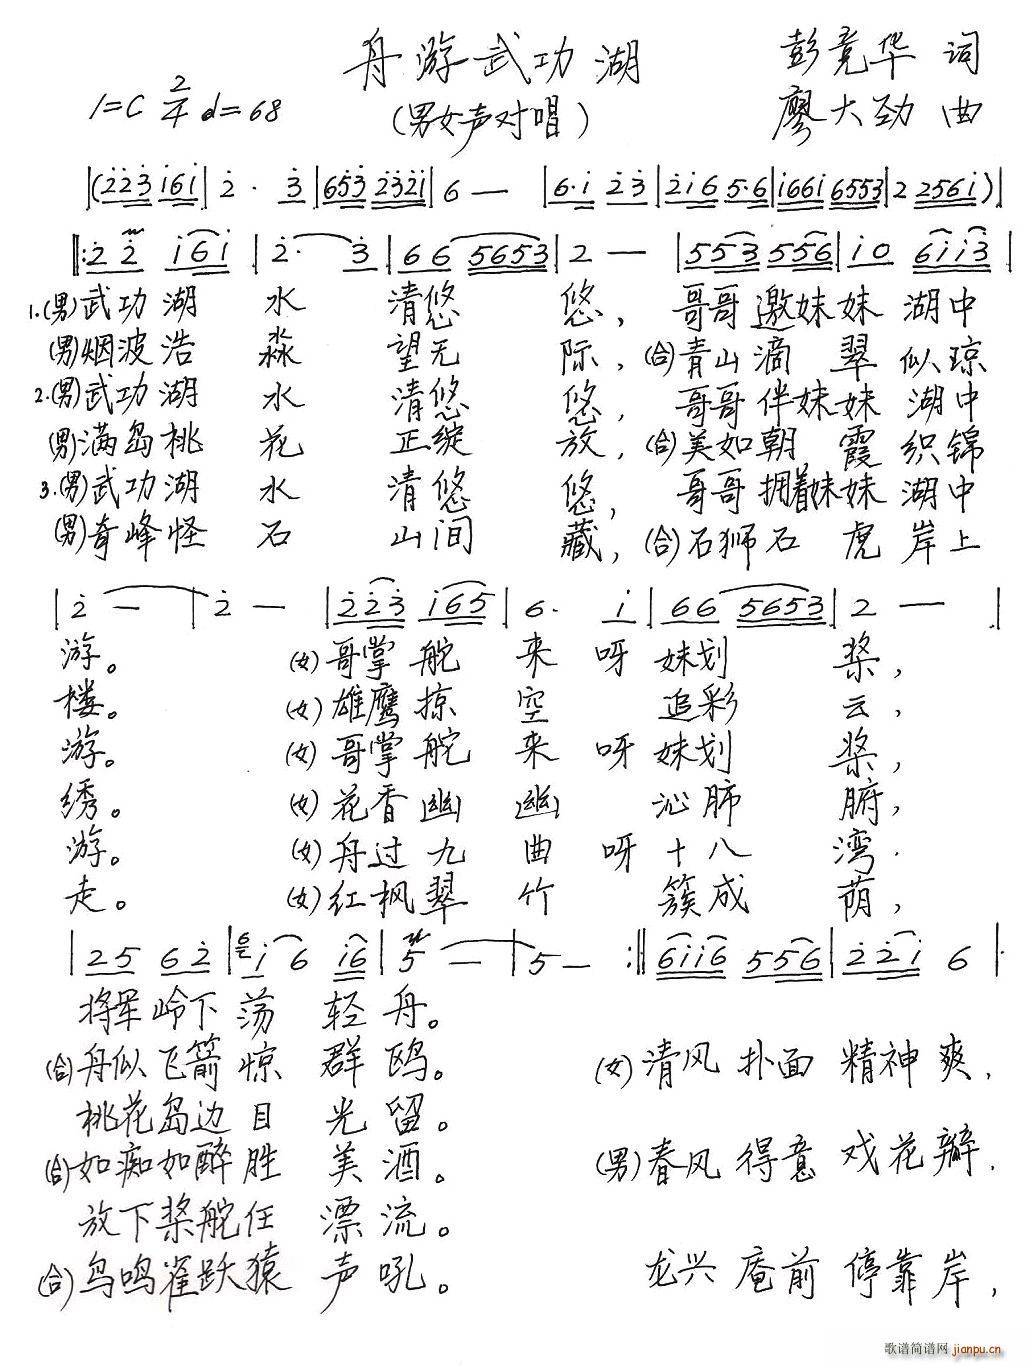 舟游武功湖
彭竟华 词
1=C 2/4 ♩=68
(男女声对唱)
廖大劲 曲
|(2̇2̇3̇ i6i| 2̇· 3̇|653̇ 2̇3̇2̇i|6 —|6·i 2̇3̇|2̇i6 5·6|i66i 6553|2 256i)|
‖:2̇2̇ i6i|2̇· 3̇|66 5653|2 —|553 556|i0 6ii3̇|
1.(男)武功湖 水 清悠 悠, 哥哥邀妹妹 湖中
(男)烟波浩 淼 望无 际,(合)青山滴 翠 似琼
2.(男)武功湖 水 清悠 悠, 哥哥伴妹妹 湖中
(男)满岛桃 花 正绽 放,(合)美如朝 霞 织锦
3.(男)武功湖 水 清悠 悠, 哥哥拥着妹妹 湖中
(男)奇峰怪 石 山间 藏,(合)石狮石 虎 岸上
|2̇ —|2̇ —|2̇2̇3̇ i65|6· i|66 5653|2 —|
游。 (女)哥掌舵 来 呀 妹划 桨,
楼。 (女)雄鹰掠 空 追彩 云,
游。 (女)哥掌舵 来 呀 妹划 桨,
绣。 (女)花香幽 幽 沁肺 腑,
游。 (女)舟过九 曲 呀 十八 湾.
走。 (女)红枫翠 竹 簇成 荫,
|25 62̇|i6 i6|5 —|5 — :‖6ii6 556|2̇2̇i 6|
将军岭下 荡 轻 舟。
(合)舟似飞箭 惊 群 鸥。 (女)清风 扑面 精神 爽,
桃花岛边 目 光 留。
(合)如痴如醉 胜 美 酒。 (男)春风 得意 戏花瓣.
放下桨舵任 漂 流。
(合)鸟鸣雀跃猿 声 吼。 龙兴 庵前 停靠岸,
歌谱简谱网 jianpu.cn